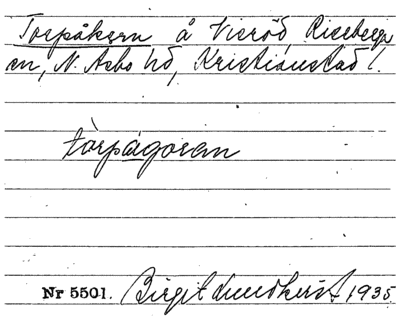 Torpåkern å Vieröd Riseberga
sn, N. Åsbo hd, Kristianstad l.
tòrpágoran
Nr 5501. Birgit Lundkvist 1935